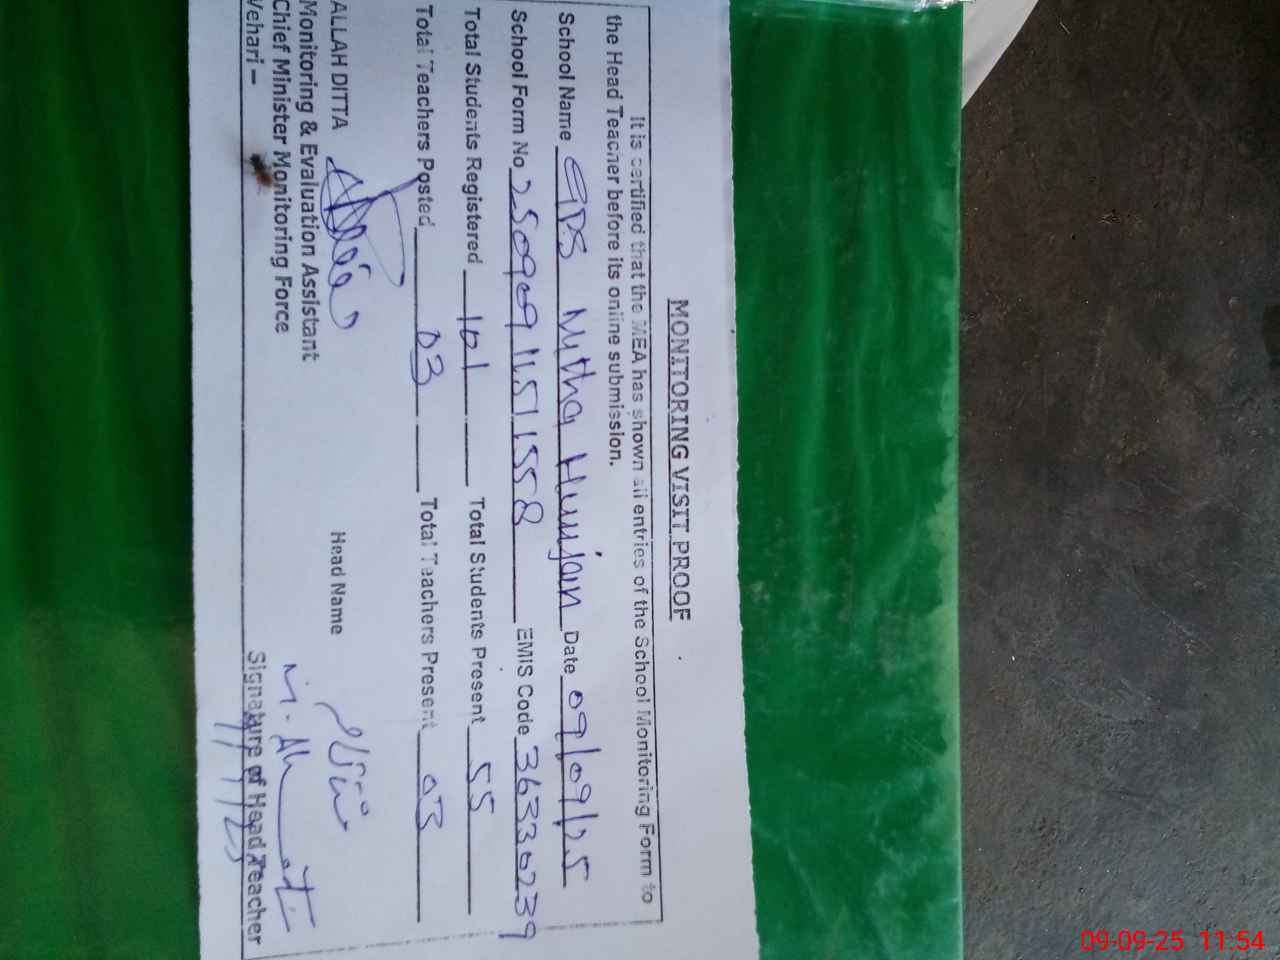 MONITORING VISIT PROOF
It is certified that the MEA has shown all entries of the School Monitoring Form to
the Head Teacher before its online submission.
School Name GPS Mitha Hunjan Date 09/09/25
School Form No 25090911511558 EMIS Code 36330239
Total Students Registered 101 Total Students Present 55
Total Teachers Posted 03 Total Teachers Present 03
ALLAH DITTA Head Name
Monitoring & Evaluation Assistant
Chief Minister Monitoring Force
Vehari – Signature of Head Teacher
09-09-25 11:54